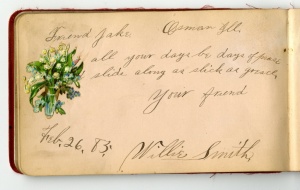 Friend Jake. Osman Ill.
all your days be days of peace
slide along as slick as grease.
Your friend
Feb. 26, 83. Willie Smith,